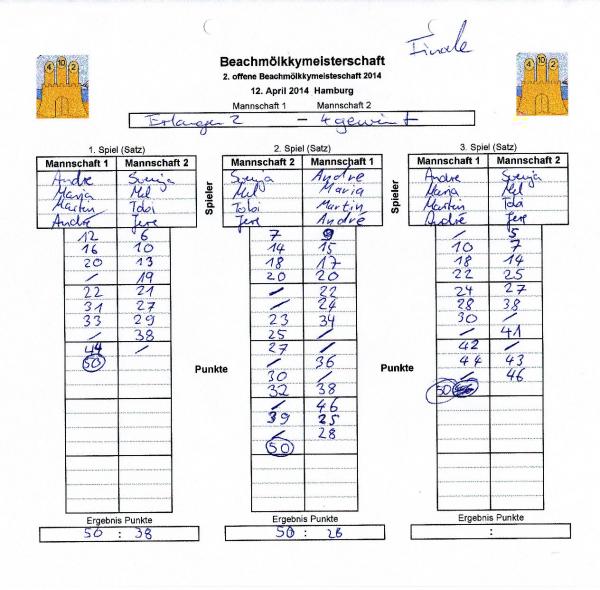 Finale
4 10 2
4 10 2
Beachmölkkymeisterschaft
2. offene Beachmölkkymeisteschaft 2014
12. April 2014 Hamburg
Mannschaft 1 Mannschaft 2
Erlangen 2 - 4gewinnt
1. Spiel (Satz)
Mannschaft 1 Mannschaft 2
Andre Svenja
Maria Mel
Martin Tobi
André Jere
12 6
16 10
20 13
/ 19
22 21
31 27
33 29
/ 38
44 /
50
Ergebnis Punkte
50 : 38
Spieler
Punkte
2. Spiel (Satz)
Mannschaft 2 Mannschaft 1
Svenja Andre
Mel Maria
Tobi Martin
Jere André
7 9
14 15
18 17
20 20
/ 22
/ 24
23 34
25 /
27 /
/ 36
30 /
32 38
/ 46
39 25
/ 28
50
Ergebnis Punkte
50 : 28
Spieler
Punkte
3. Spiel (Satz)
Mannschaft 1 Mannschaft 2
Andre Svenja
Maria Mel
Martin Tobi
André Jere
/ 5
10 7
18 14
22 25
24 27
28 38
30 /
/ 41
42 /
44 43
/ 46
50
Ergebnis Punkte
: